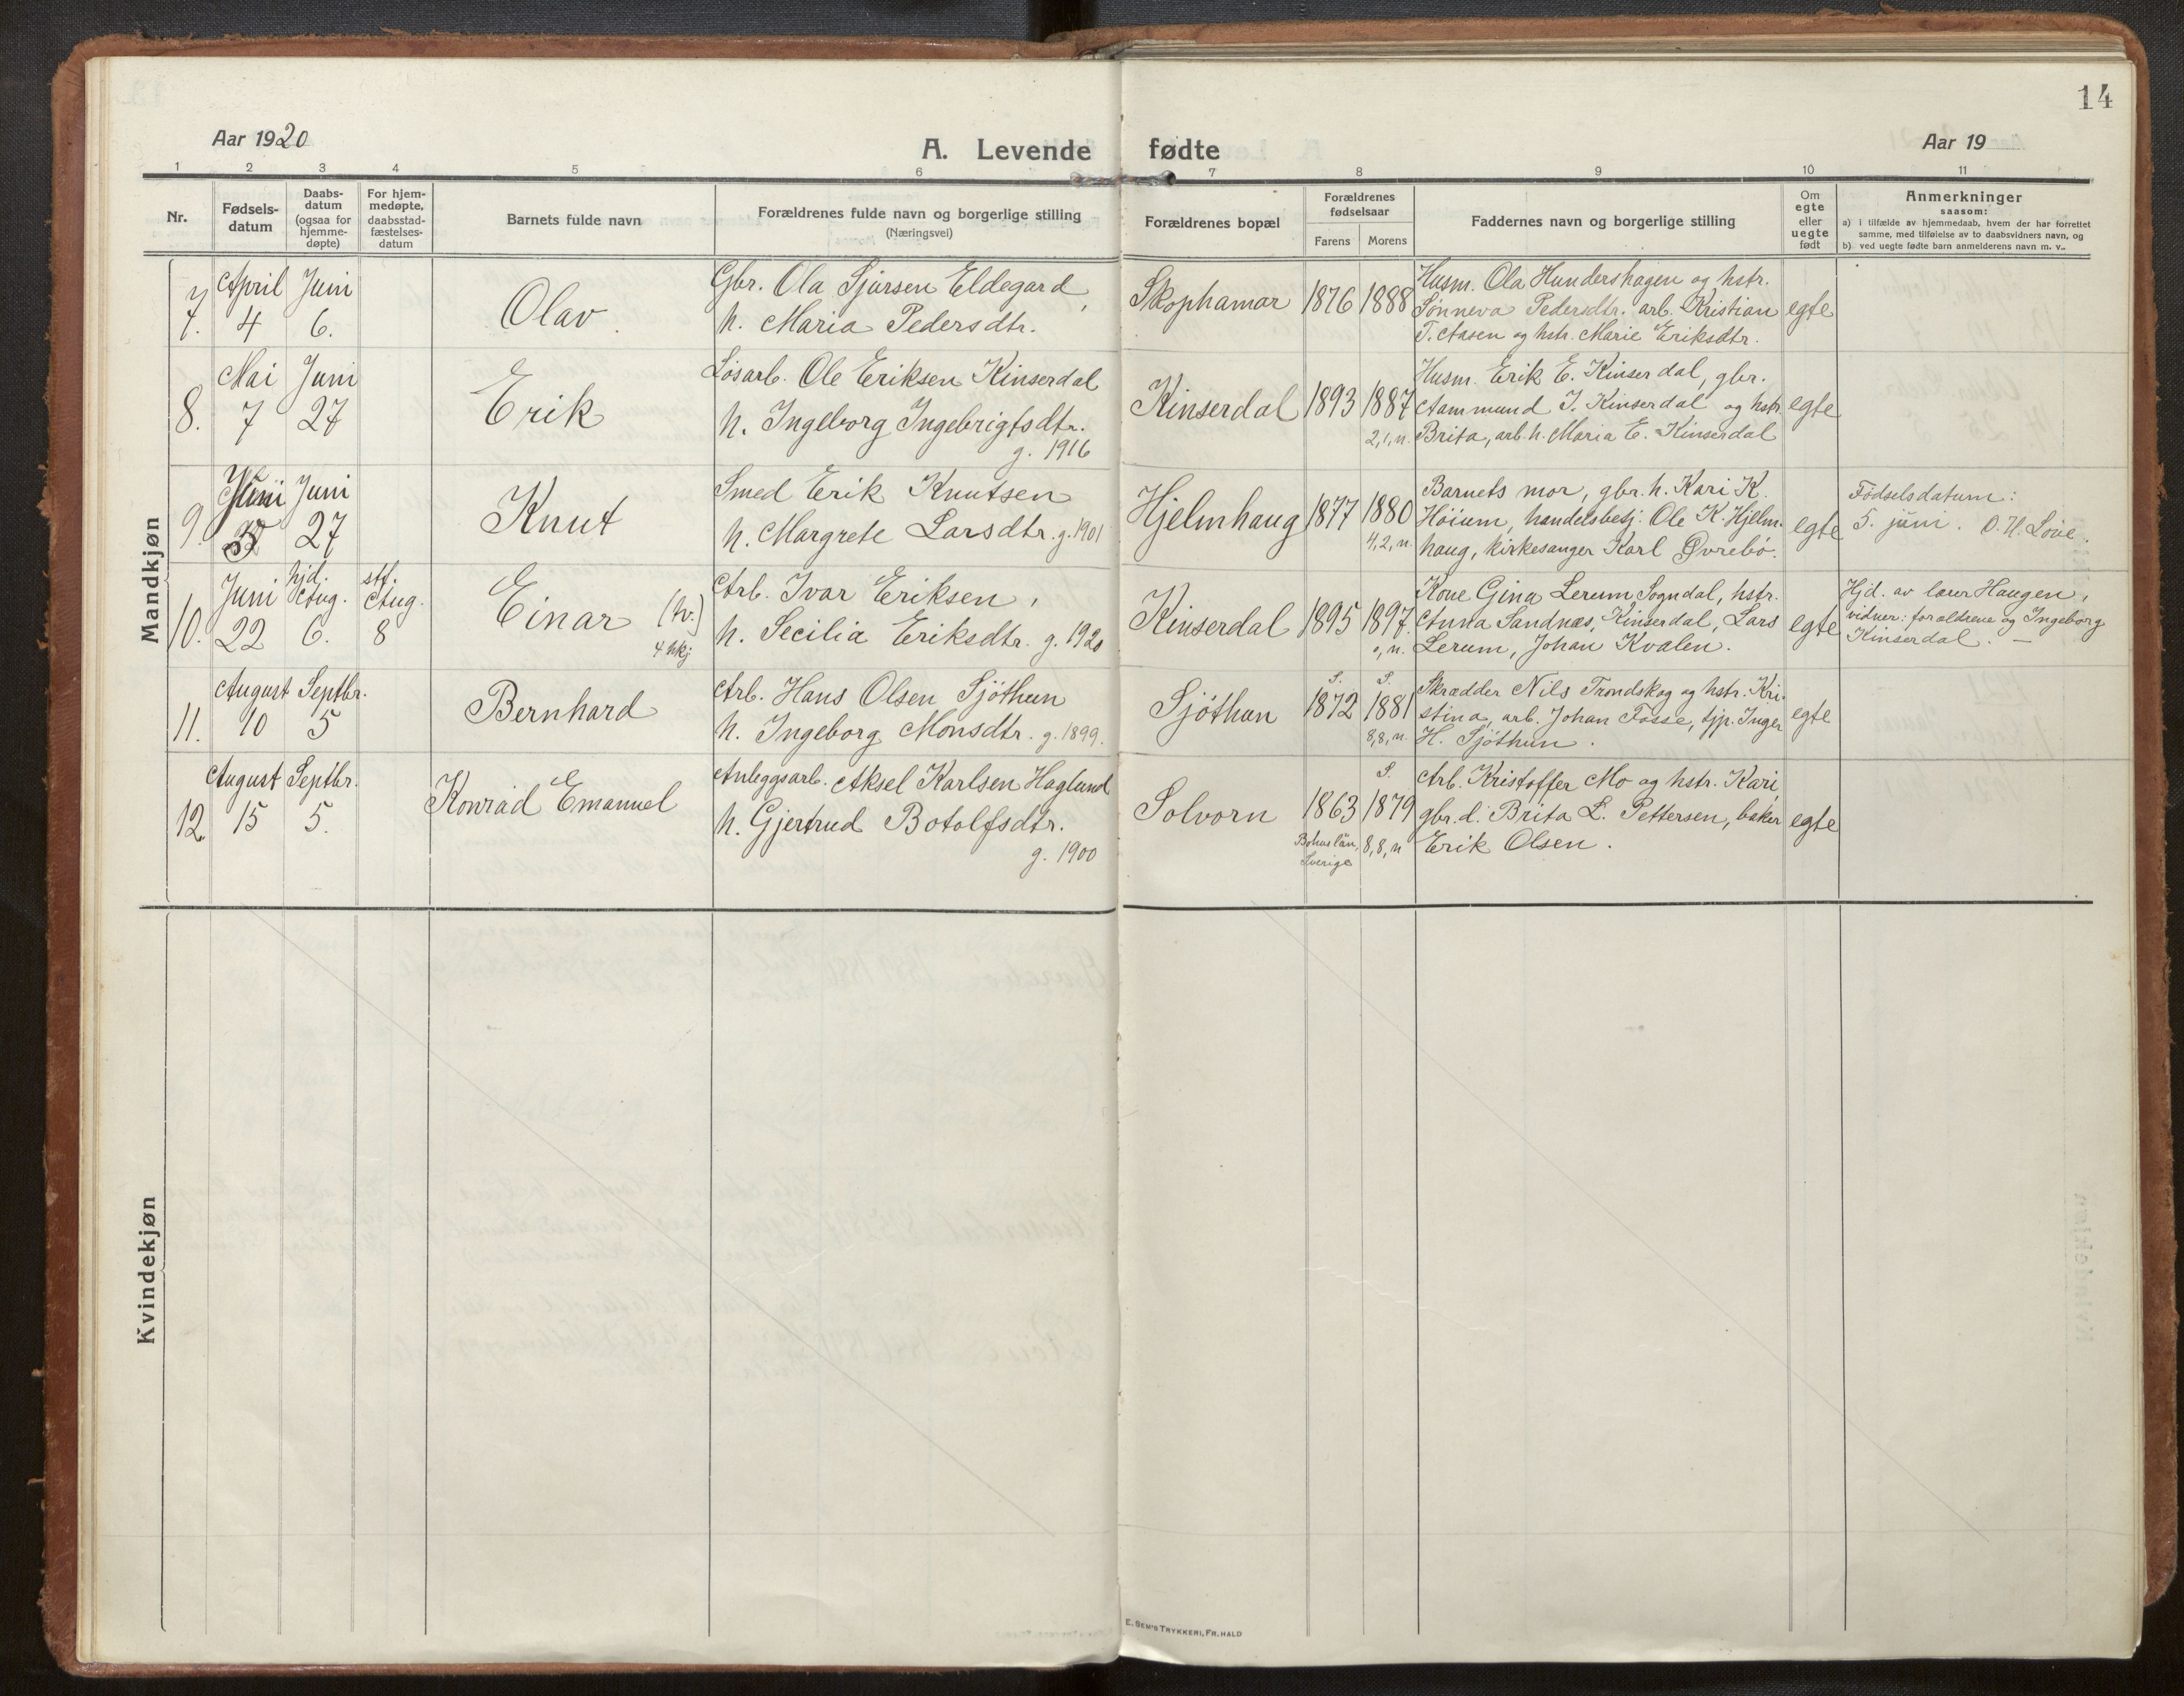 14
Aar 1920
A. Levende fødte
Aar 19
1 2 3 4 5 6 7 8 9 10 11
Nr.
Fødsels-
datum
Daabs-
datum
(ogsaa for
hjemme-
døpte)
For hjem-
medøpte,
daabsstad-
fæstelses-
datum
Barnets fulde navn
Forældrenes fulde navn og borgerlige stilling
(Næringsvei)
Forældrenes bopæl
Forældrenes
fødselsaar
Farens Morens
Faddernes navn og borgerlige stilling
Om
egte
eller
uegte
født
Anmerkninger
saasom:
a) i tilfælde av hjemmedaab, hvem der har forrettet
samme, med tilføielse av to daabsvidners navn, og
b) ved uegte fødte barn anmelderens navn m. v..
Mandkjøn
7.
April
4
Juni
6.
Olav
Gbr. Ola Sjursen Eldegard,
h. Maria Pedersdtr.
Skophamar
1876
1888
Husm. Ola Hundershagen og hstr.
Sønneva Pedersdtr. arb. Kristian
T. Aasen og hstr. Marie Eriksdtr.
egte
8.
Mai
7
Juni
27
Erik
Løsarb. Ole Eriksen Kinserdal
h. Ingeborg Ingebrigtsdtr.
g. 1916
Kinserdal
1893
1887
2,1,n.
Husm. Erik E. Kinserdal, gbr.
Aammund I. Kinserdal og hstr.
Brita, arb. h. Maria E. Kinserdal
egte
9.
Juni
5
Juni
27
Knut
Smed Erik Knutsen
h. Margrete Larsdtr. g. 1901
Hjelmhaug
1877
1880
4,2,n.
Barnets mor, gbr. h. Kari K.
Høium, handelsbetj. Ole K. Hjelm-
haug, kirkesanger Karl Øvrebø.
egte
Fødselsdatum:
5. juni. O. H. Loue.
10.
Juni
22
hjd.
Aug.
6.
stf.
Aug.
8
Einar (tv.)
4 hkj
Arb. Ivar Eriksen,
h. Secilia Eriksdtr. g. 1920
Kinserdal
1895
1897.
0,n.
Kone Gina Lerum Sogndal, hstr.
Anna Sandnæs, Kinserdal, Lars
Lerum, Johan Kvalen.
egte
Hjd. av lærer Haugen,
vidner: foraldrene og Ingeborg
Kinserdal. —
11.
August
10
Septbr.
5
Bernhard
Arb. Hans Olsen Sjöthun
h. Ingeborg Monsdtr. g. 1899.
Sjöthun
S.
1872
S.
1881
8,8,n.
Skrædder Nils Trondskog og hstr. Kri-
stina, arb. Johan Fosse, tjp. Inger
H. Sjöthun.
egte
12.
August
15
Septbr.
5.
Konrad Emanuel
Anleggsarb. Aksel Karlsen Haglund
h. Gjertrud Botolfsdtr.
g. 1900
Solvorn
1863
Bohuslän,
Sverige
S.
1879
8,8,n
Arb. Kristoffer Mo og hstr. Kari,
gbr. d. Brita L. Pettersen, baker
Erik Olsen.
egte
Kvindekjøn
E. SEM'S TRYKKERI, FR. HALD